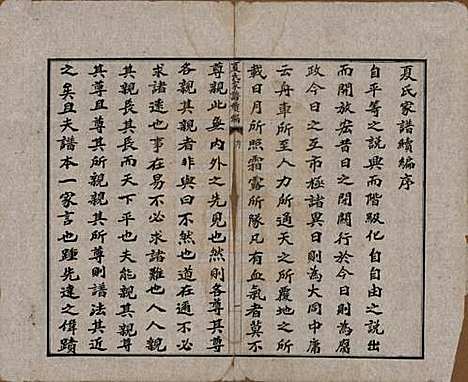 夏氏家譜續編序
自平等之說興而階級化自自由之說出
而開放宏昔日之閉關行於今日則為腐
政今日之互市極諸異日則為大同中庸
云舟車所至人力所通天之所覆地之所
載日月所照霜露所隊凡有血氣者莫不
夏氏家譜續編
序
一
尊親此無內外之先見也然則各尊其尊
各親其親者非與曰不然也道在通不必
求諸遠也事在易不必求諸難也人人親
其親長其長而天下平也夫能親其親尊
其尊且尊其所親其所尊則譜法其近
之矣且夫譜本一家言也踵先達之偉蹟